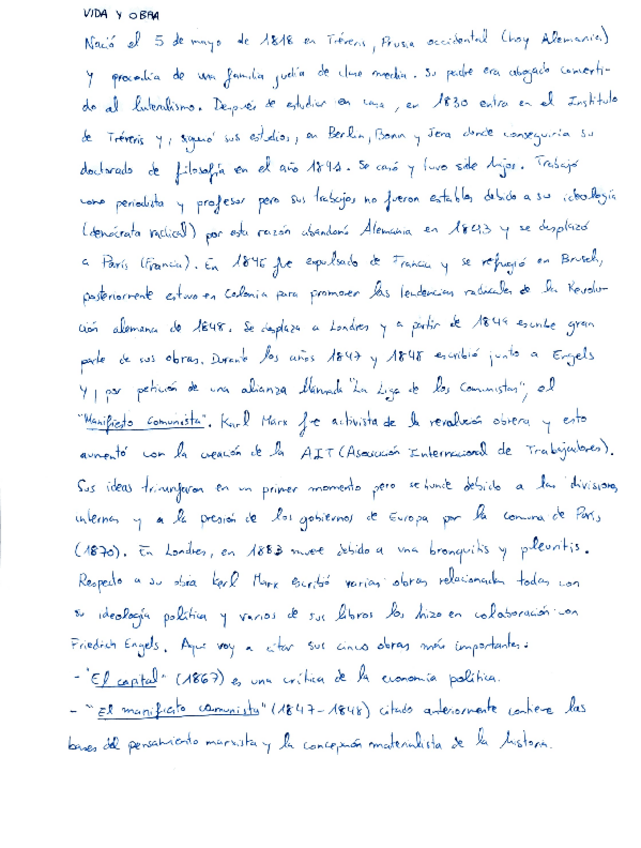 VIDA Y OBRA
Nació el 5 de mayo de 1818 en Tréveris, Prusia occidental (hoy Alemania)
y procedía de una familia judía de clase media. Su padre era abogado converti-
do al luteralismo. Después de estudiar en casa, en 1830 entra en el Instituto
de Tréveris y, siguió sus estudios, en Berlín, Bonn y Jena donde conseguiría su
doctorado de filosofía en el año 1841. Se casó y tuvo siete hijos. Trabajó
como periodista y profesor pero sus trabajos no fueron estables debido a su ideología
(demócrata radical) por esta razón abandonó Alemania en 1843 y se desplazó
a París (Francia). En 1845 fue expulsado de Francia y se refugió en Brusch,
posteriormente estuvo en Colonia para promover las tendencias radicales de la Revolu-
ción alemana de 1848. Se desplaza a Londres y a partir de 1849 escribe gran
parte de sus obras. Durante los años 1847 y 1848 escribió junto a Engels
y, por petición de una alianza llamada "La Liga de los Comunistas", el
"Manifiesto Comunista". Karl Marx fue activista de la revolución obrera y esto
aumentó con la creación de la AIT (Asociación Internacional de Trabajadores).
Sus ideas triunfaron en un primer momento pero se hunde debido a las divisiones
internas y a la presión de los gobiernos de Europa por la comuna de París
(1870). En Londres, en 1883 muere debido a una bronquitis y pleuritis.
Respecto a su obra Karl Marx escribió varias obras relacionadas todas con
su ideología política y varios de sus libros los hizo en colaboración con
Friedrich Engels. Aquí voy a citar sus cinco obras más importantes:
- "El capital" (1867) es una crítica de la economía política.
- "El manifiesto comunista" (1847-1848) citado anteriormente contiene las
bases del pensamiento marxista y la concepción materialista de la historia.